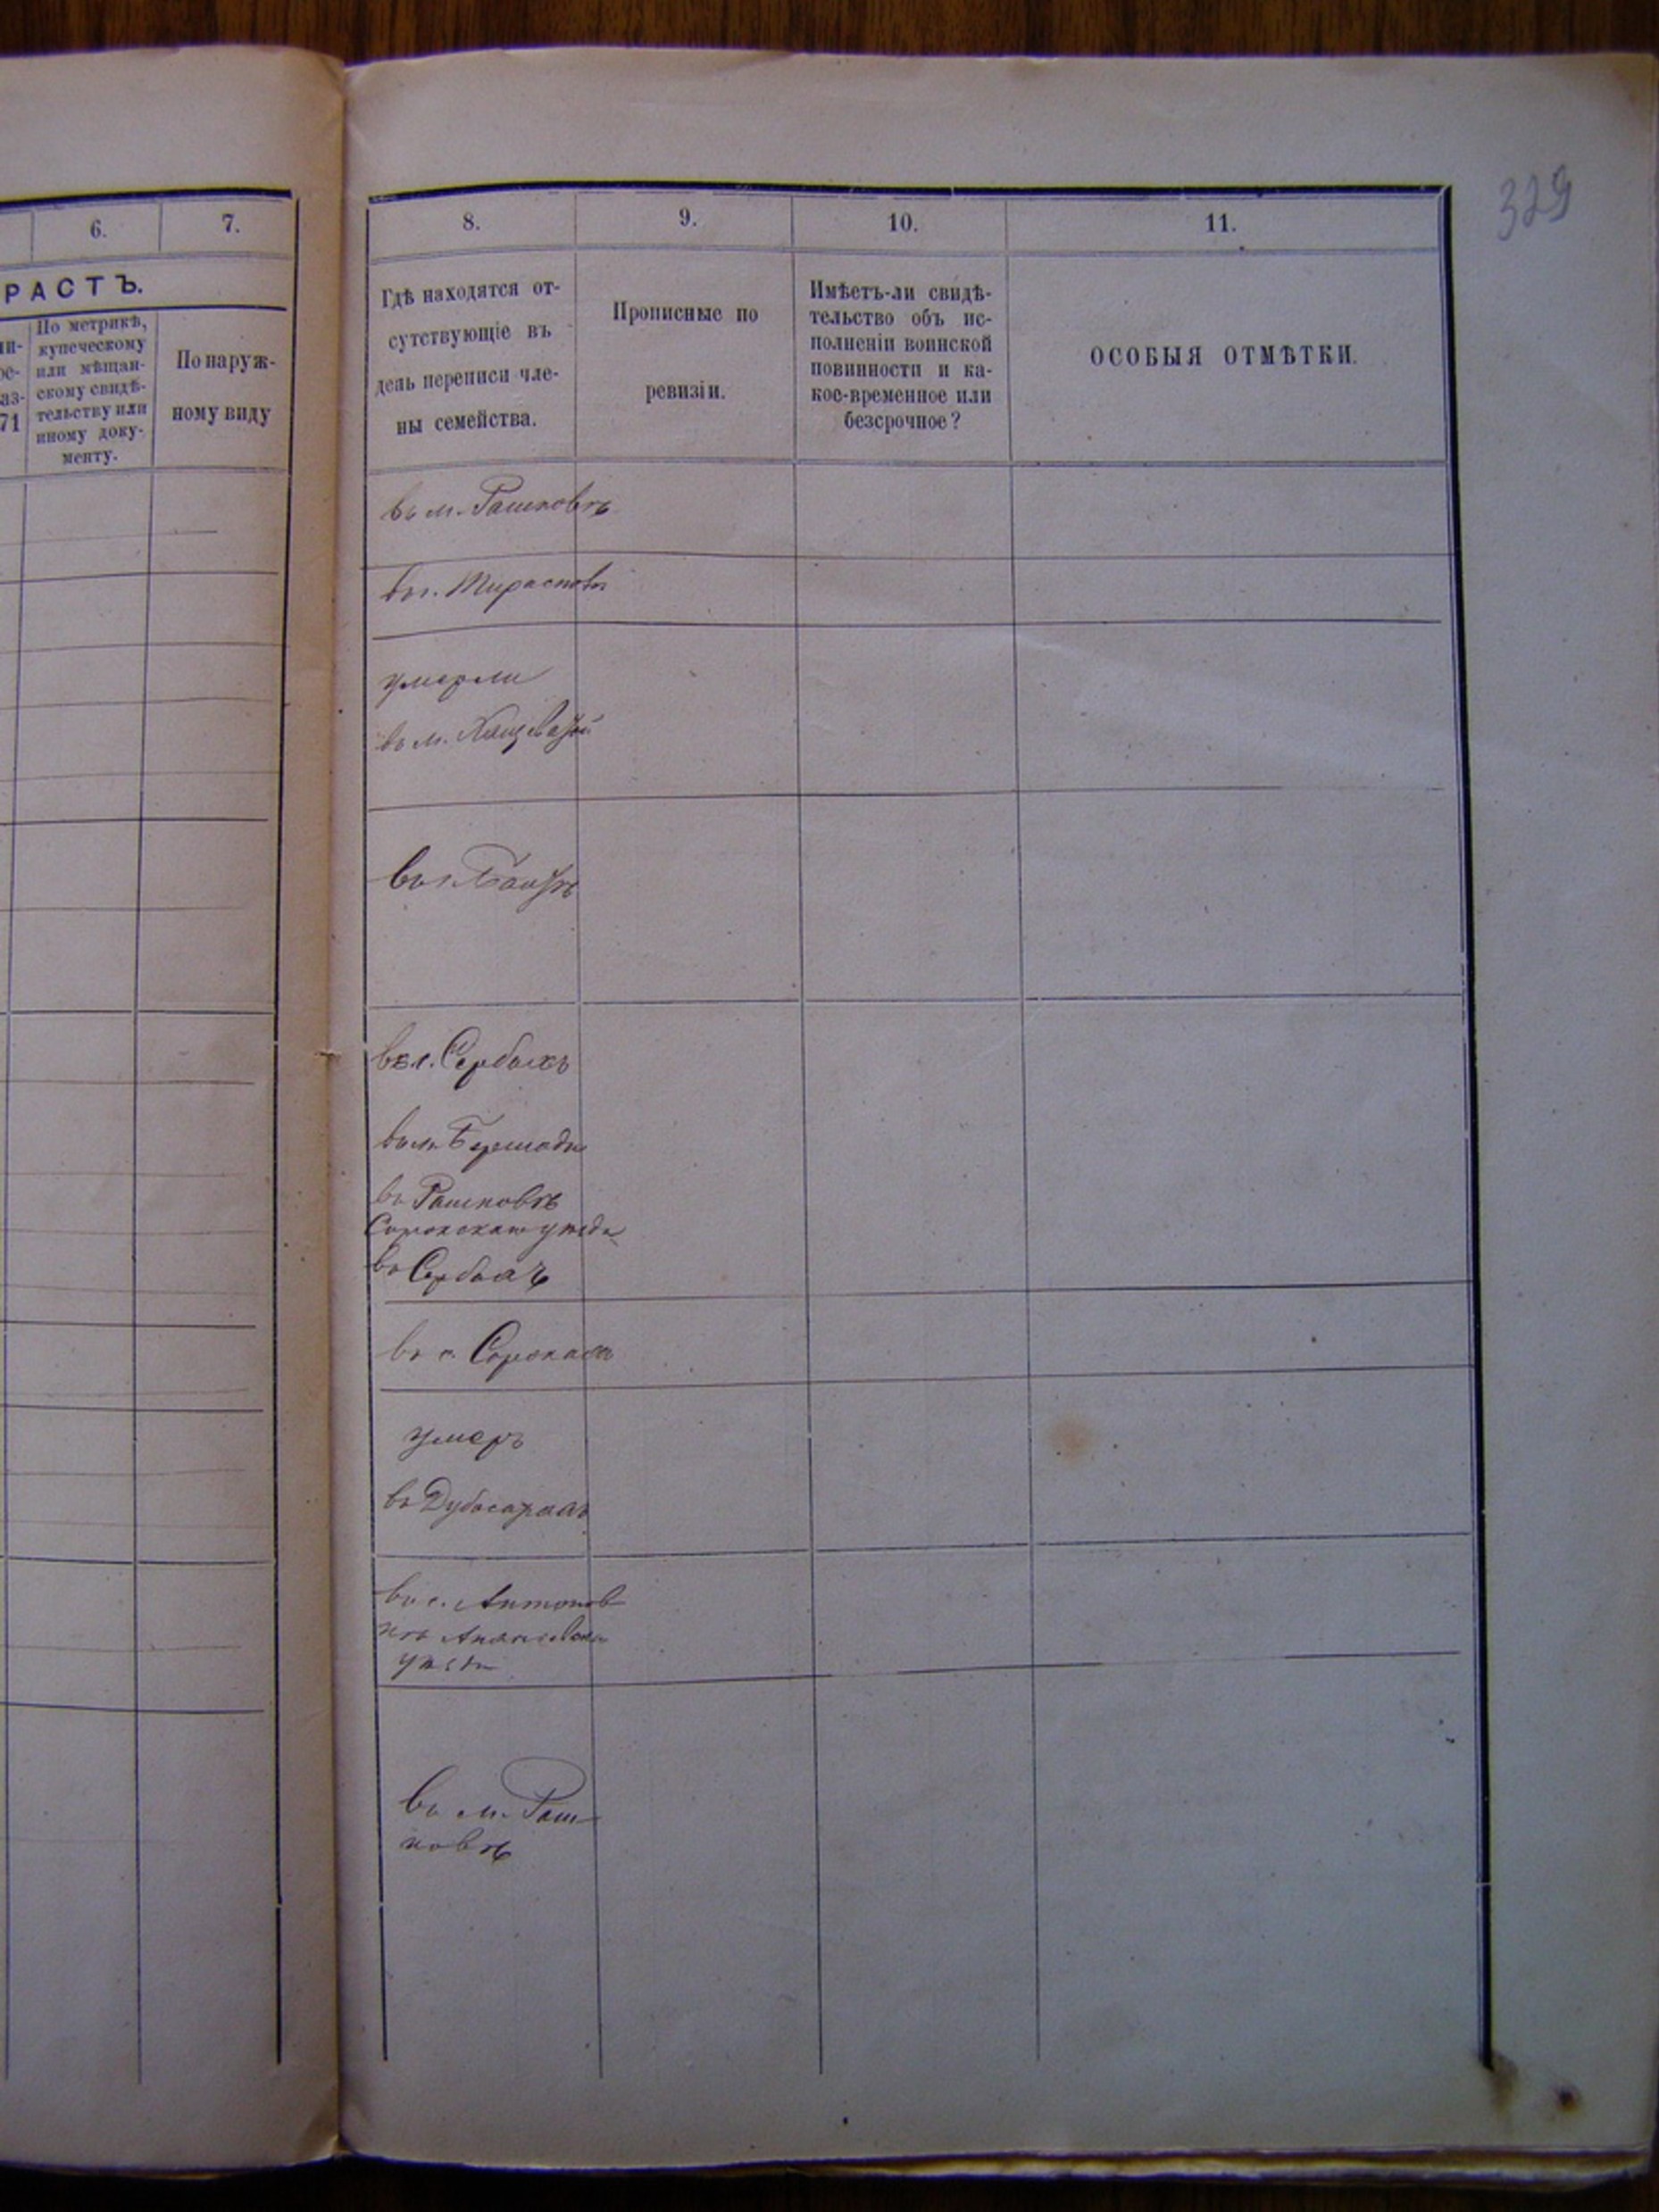 329
6.
7.
РАСТЪ.
По метрикѣ,
купеческому
или мѣщан-
скому свидѣ-
тельству или
иному доку-
менту.
71
По наруж-
ному виду
8.
9.
10.
11.
Гдѣ находятся от-
сутствующіе въ
день переписи чле-
ны семейства.
Прописные по
ревизіи.
Имѣетъ-ли свидѣ-
тельство объ ис-
полненіи воинской
повинности и ка-
кое-временное или
безсрочное?
ОСОБЫЯ ОТМѢТКИ.
въ м. Рашковѣ
въ г.
умерли
въ м. Хащеватой
въ г. Балтѣ
въ с. Сербахъ
въ м. Бершади
въ Рашковѣ
Сорокскаго уезда
въ Сербахъ
въ г. Сорокахъ
умеръ
въ Дубосарахъ
въ с. Антонов-
кѣ
въ м. Раш-
ковѣ